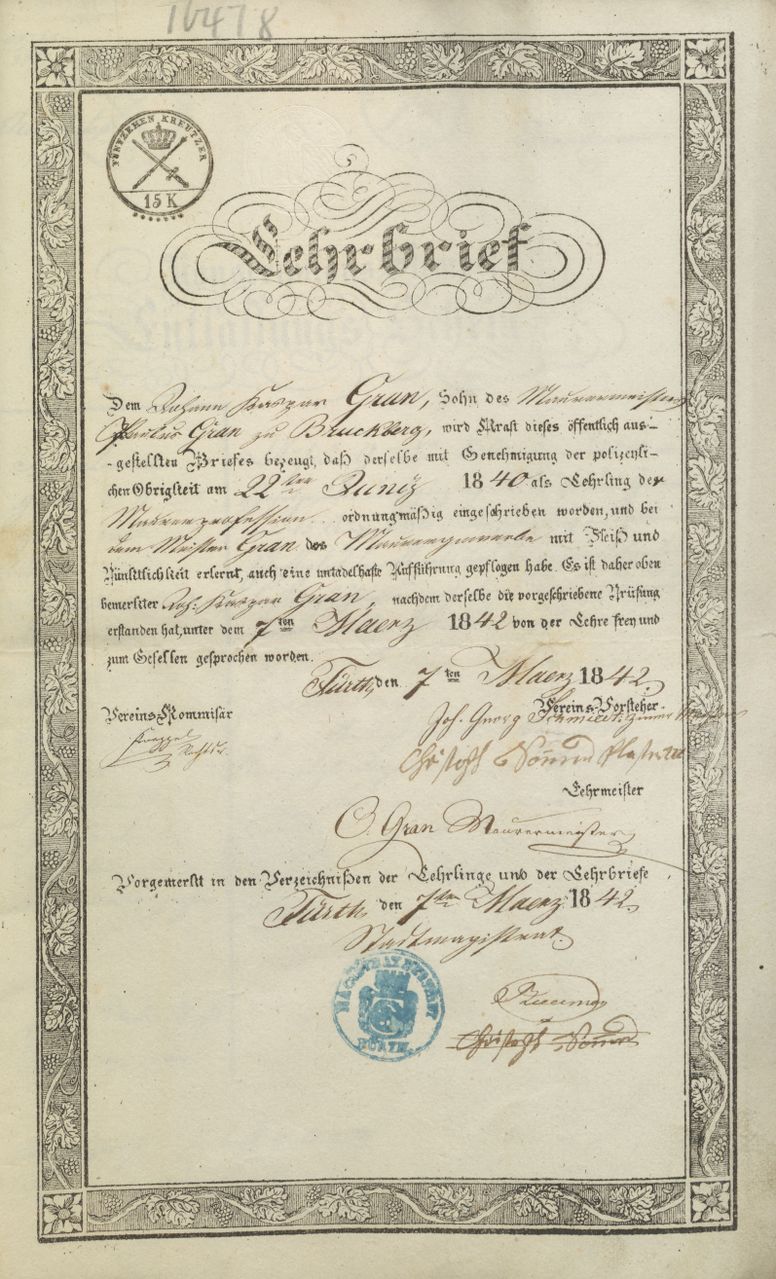 16478
FÜNFZEHEN KREUTZER
15 K
Lehrbrief
Dem Johann Kaspar Gran, Sohn des Maurermeisters
Gran zu Bruckberg, wird Kraft dieses öffentlich aus-
-gestellten Briefes bezeugt, daß derselbe mit Genehmigung der polizeyli-
chen Obrigkeit am 22ten Juniz 1840 als Lehrling der
Maurerprofession ordnungmäßig eingeschrieben worden, und bei
dem Meister Gran des Maurergewerbe mit Fleiß und
Pünktlichkeit erlernt, auch eine untadelhafte Aufführung gepflogen habe. Es ist daher oben
bemerkter Joh. Kaspar Gran, nachdem derselbe die vorgeschriebene Prüfung
erstanden hat, unter dem 7ten Maerz 1842 von der Lehre frey und
zum Gesellen gesprochen worden.
Fürth, den 7ten Maerz 1842.
Vereins Kommisär
Vereins-Vorsteher
Joh. Georg Schmidt
Christoph
Lehrmeister
Gran Maurermeister
Vorgemerkt in den Verzeichnißen der Lehrlinge und der Lehrbriefe
Fürth, den 7ten Maerz 1842
Stadtmagistrat.
MAGISTRAT DER STADT
FÜRTH
Christoph